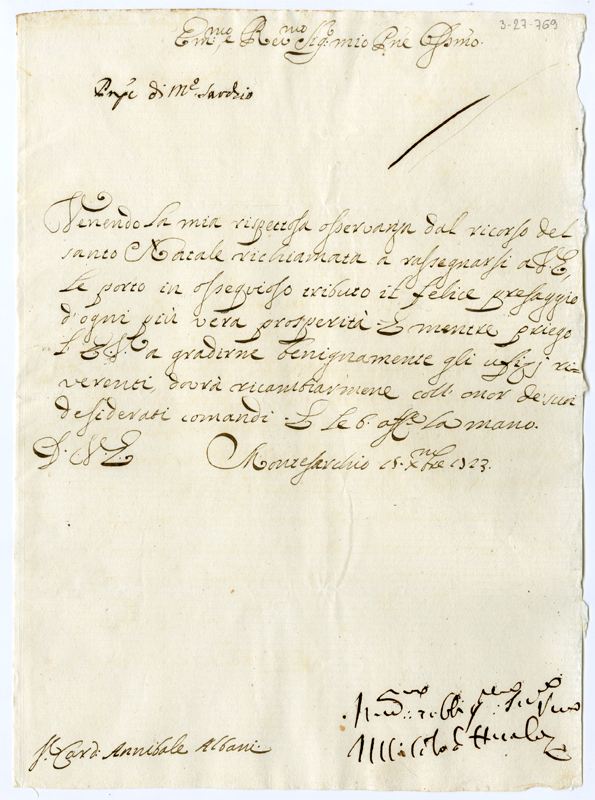 3-27-769
Em.mo e Rev.mo Sig.r mio P̃ne Oss̃mo.
Pñpe di M.e Sarchio
Venendo la mia rispettosa osservanza dal ricorso del
santo Natale richiamata à rassegnarsi a V.E
le porto in ossequioso tributo il felice presaggio
d'ogni più vera prosperità. E mentre priego
l'E.V. a gradirne benignamente gli ufizj ri=
verenti, dovrà ricambiarmene coll' onor de' suoi
desiderati comandi. E le b. aff.e la mano.
D. V. E. Montesarchio 15. Xbre 1723.
S.r Card. Annibale Albani